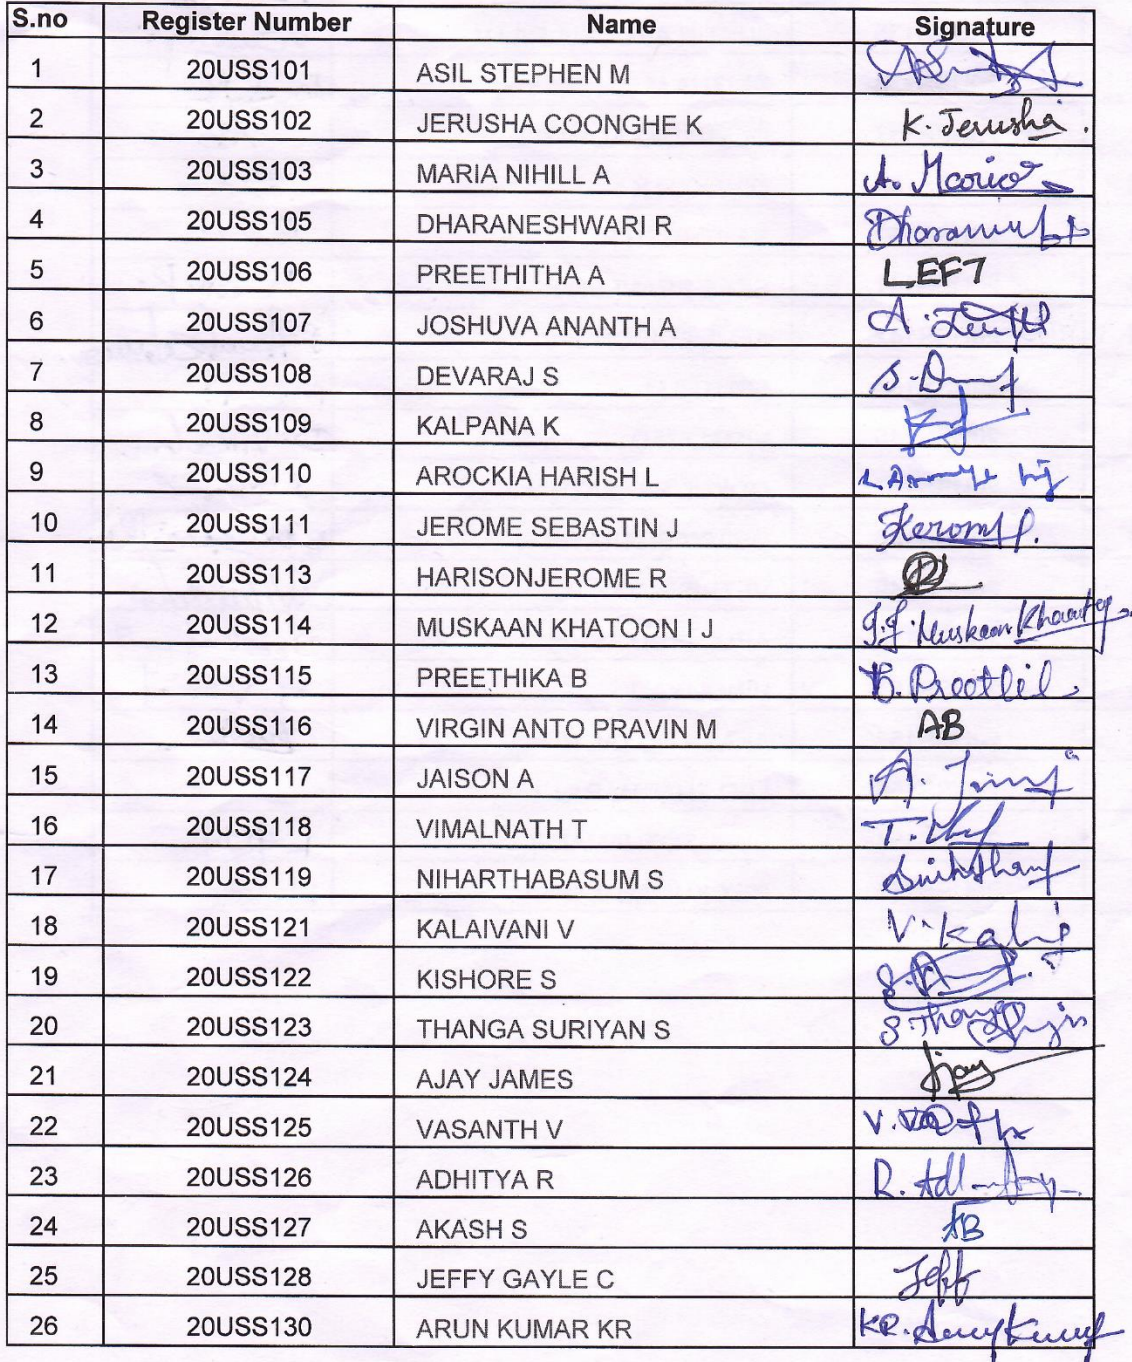 S.no Register Number Name Signature
1 20USS101 ASIL STEPHEN M
2 20USS102 JERUSHA COONGHE K K. Jerusha.
3 20USS103 MARIA NIHILL A A. Maria
4 20USS105 DHARANESHWARI R
5 20USS106 PREETHITHA A LEFT
6 20USS107 JOSHUVA ANANTH A A.
7 20USS108 DEVARAJ S S.
8 20USS109 KALPANA K
9 20USS110 AROCKIA HARISH L L.
10 20USS111 JEROME SEBASTIN J
11 20USS113 HARISONJEROME R
12 20USS114 MUSKAAN KHATOON I J I.J. Muskaan Khaatoon
13 20USS115 PREETHIKA B B.
14 20USS116 VIRGIN ANTO PRAVIN M AB
15 20USS117 JAISON A A.
16 20USS118 VIMALNATH T T.
17 20USS119 NIHARTHABASUM S
18 20USS121 KALAIVANI V V.
19 20USS122 KISHORE S S.
20 20USS123 THANGA SURIYAN S S.
21 20USS124 AJAY JAMES
22 20USS125 VASANTH V V.
23 20USS126 ADHITYA R R.
24 20USS127 AKASH S AB
25 20USS128 JEFFY GAYLE C Jeff
26 20USS130 ARUN KUMAR KR KR.